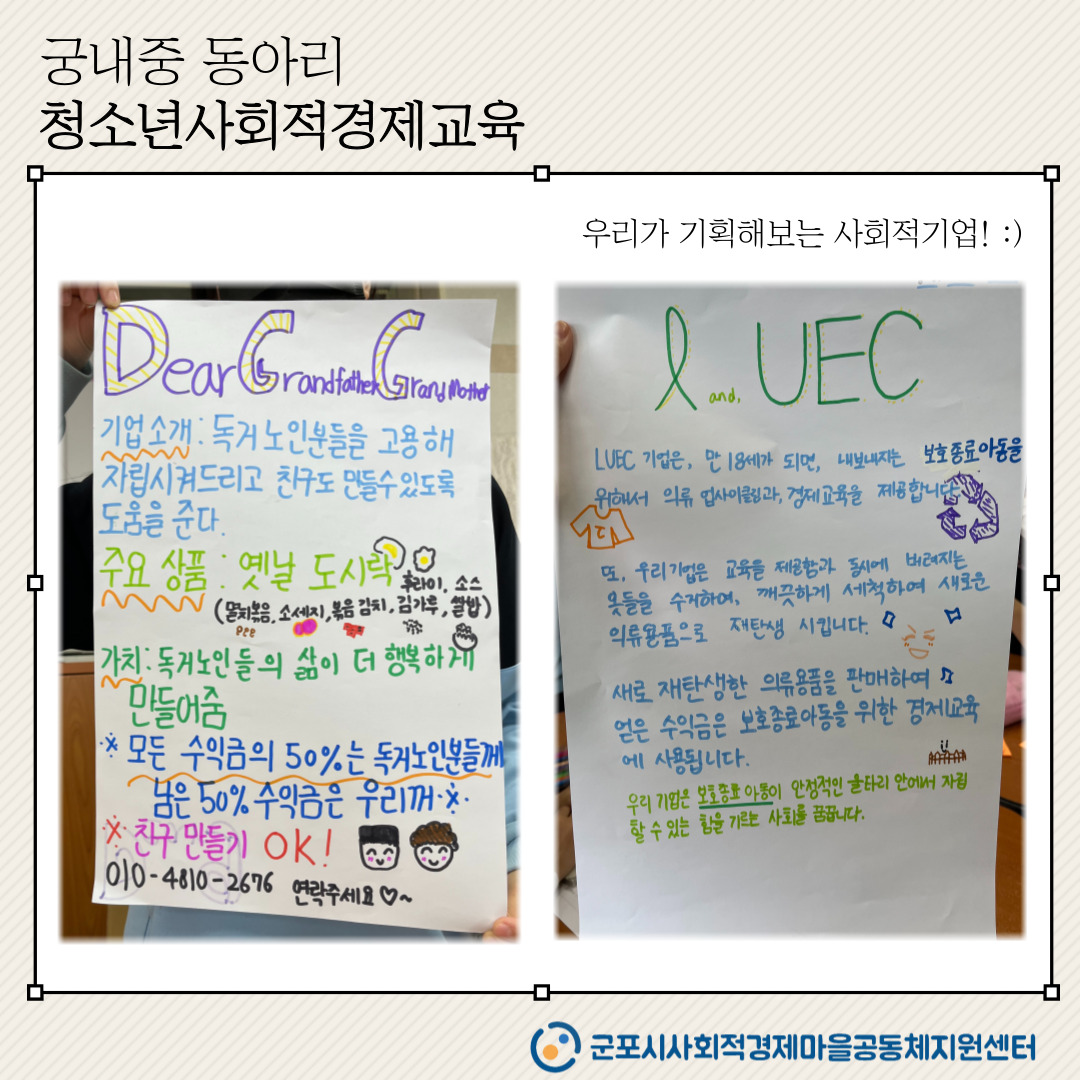 궁내중 동아리
청소년사회적경제교육
우리가 기획해보는 사회적기업! :)
Dear Grandfather Grandmother
기업소개 : 독거노인분들을 고용해
자립시켜드리고 친구도 만들수있도록
도움을 준다.
주요 상품 : 옛날 도시락
후라이, 소스
(멸치볶음, 소세지, 볶음김치, 김가루, 쌀밥)
가치 : 독거노인들의 삶이 더 행복하게
만들어줌
※ 모든 수익금의 50%는 독거노인분들께
남은 50% 수익금은 우리꺼 ※
※ 친구 만들기 OK!
010-4810-2676 연락주세요♡~
l and, UEC
LUEC 기업은, 만 18세가 되면, 내보내지는 보호종료아동을
위해서 의류 업사이클링과, 경제교육을 제공합니다.
또, 우리기업은 교육을 제공함과 동시에 버려지는
옷들을 수거하여, 깨끗하게 세척하여 새로운
의류용품으로 재탄생 시킵니다.
새로 재탄생한 의류용품을 판매하여
얻은 수익금은 보호종료아동을 위한 경제교육
에 사용됩니다.
우리 기업은 보호종료 아동이 안정적인 울타리 안에서 자립
할 수 있는 힘을 기르는 사회를 꿈꿉니다.
군포시사회적경제마을공동체지원센터